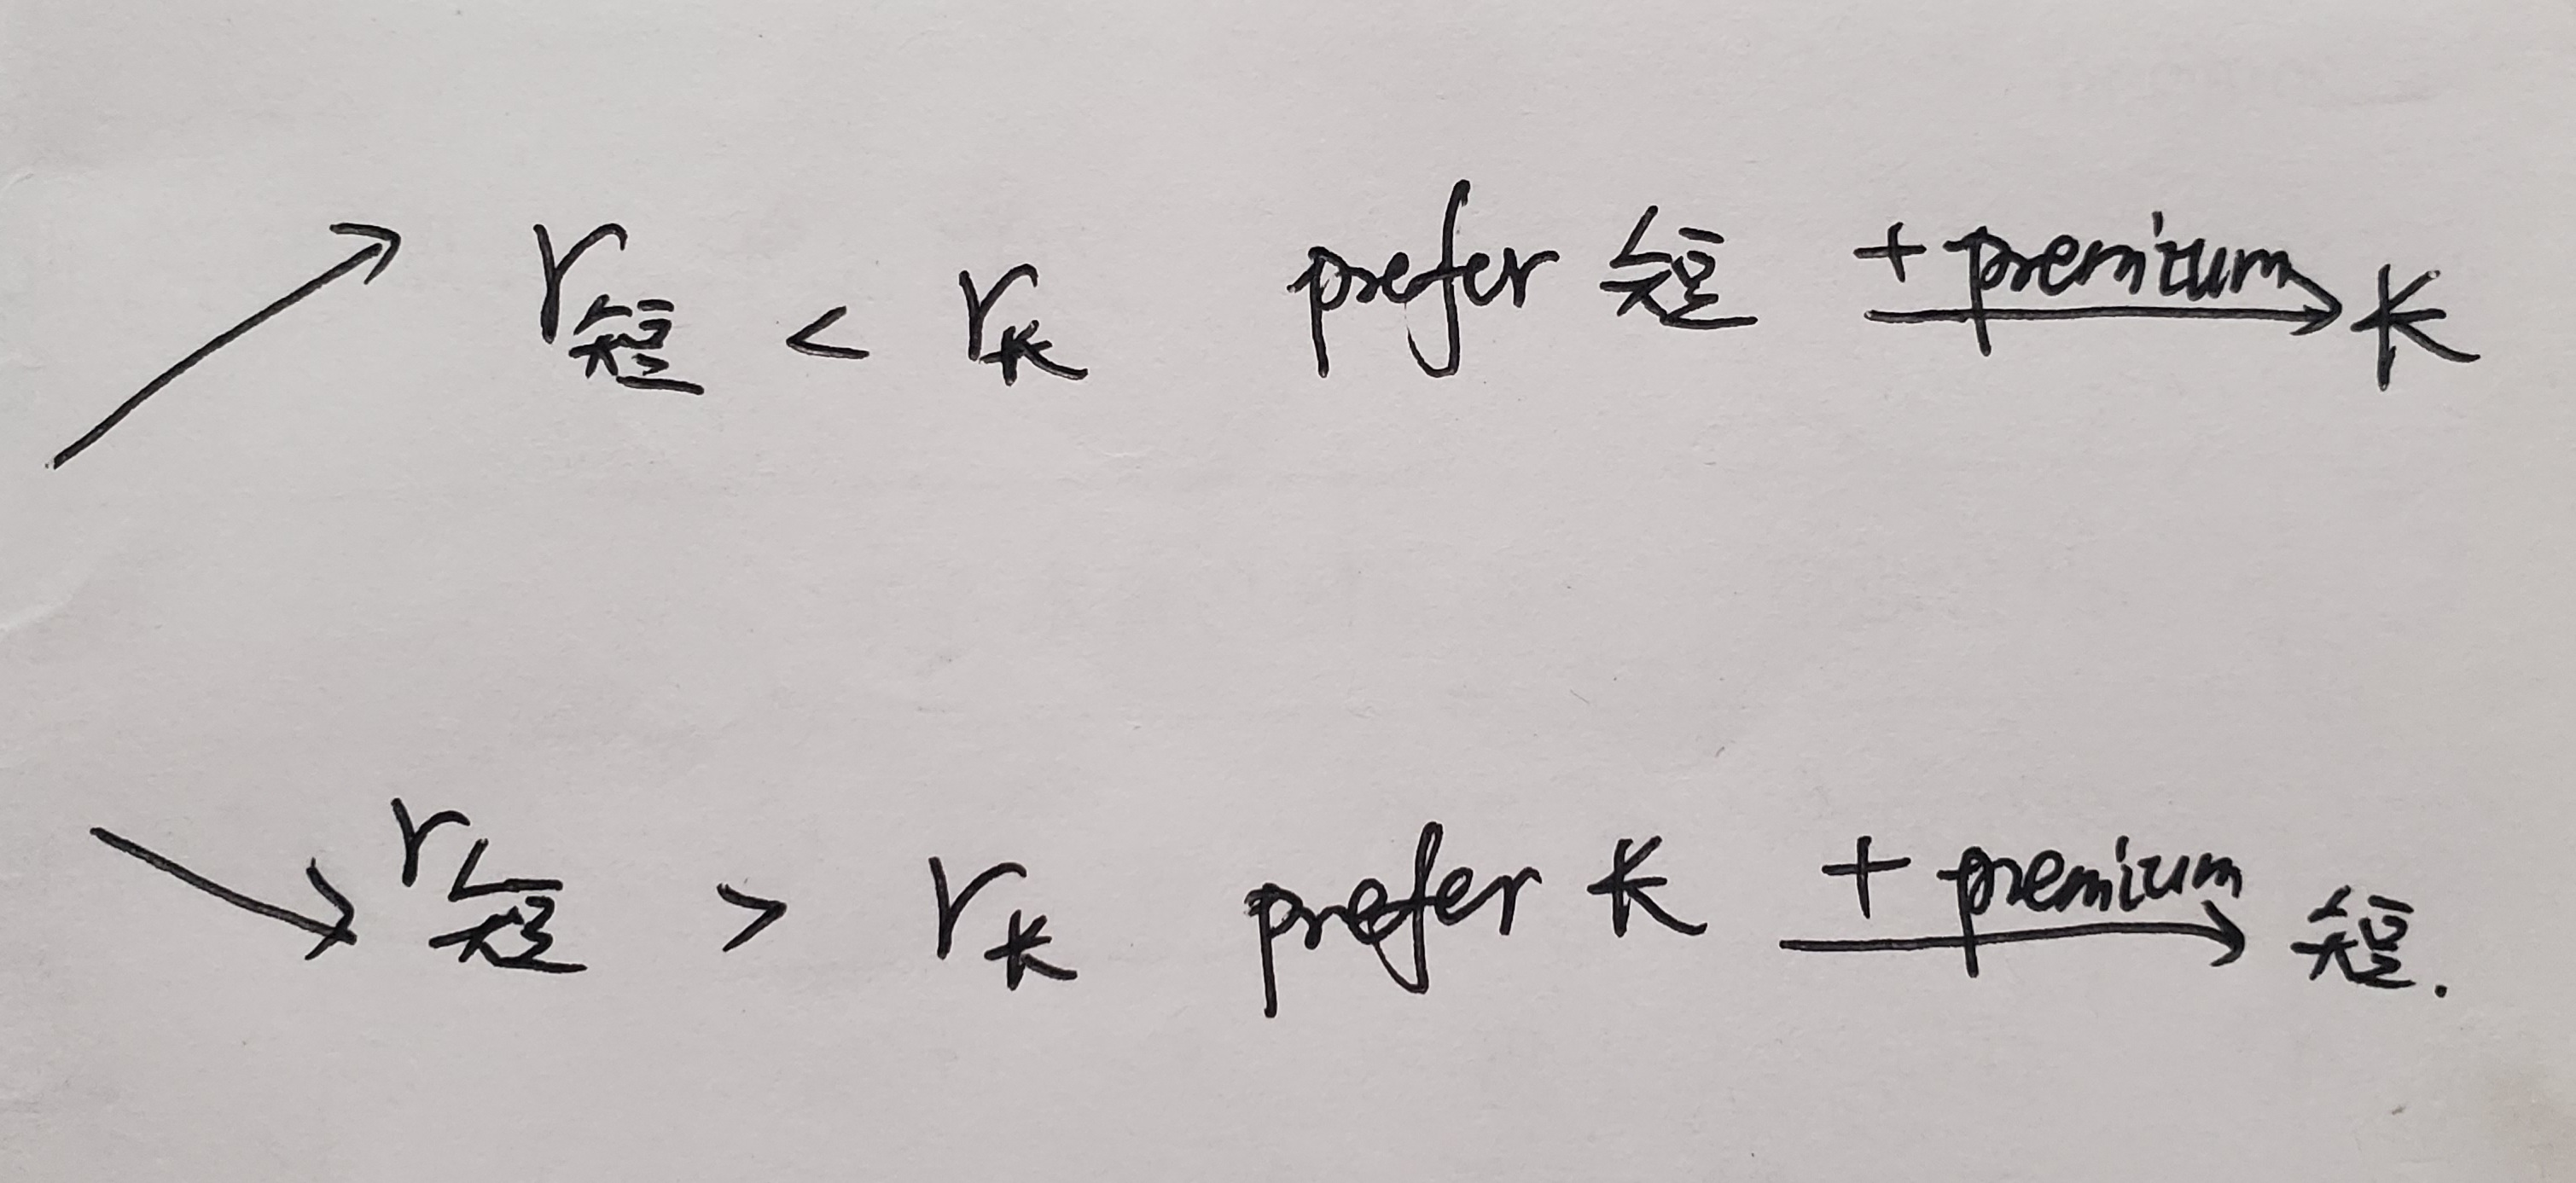 ↗ r短 < r长 prefer 短 + premium → 长
↘ r短 > r长 prefer 长 + premium → 短.